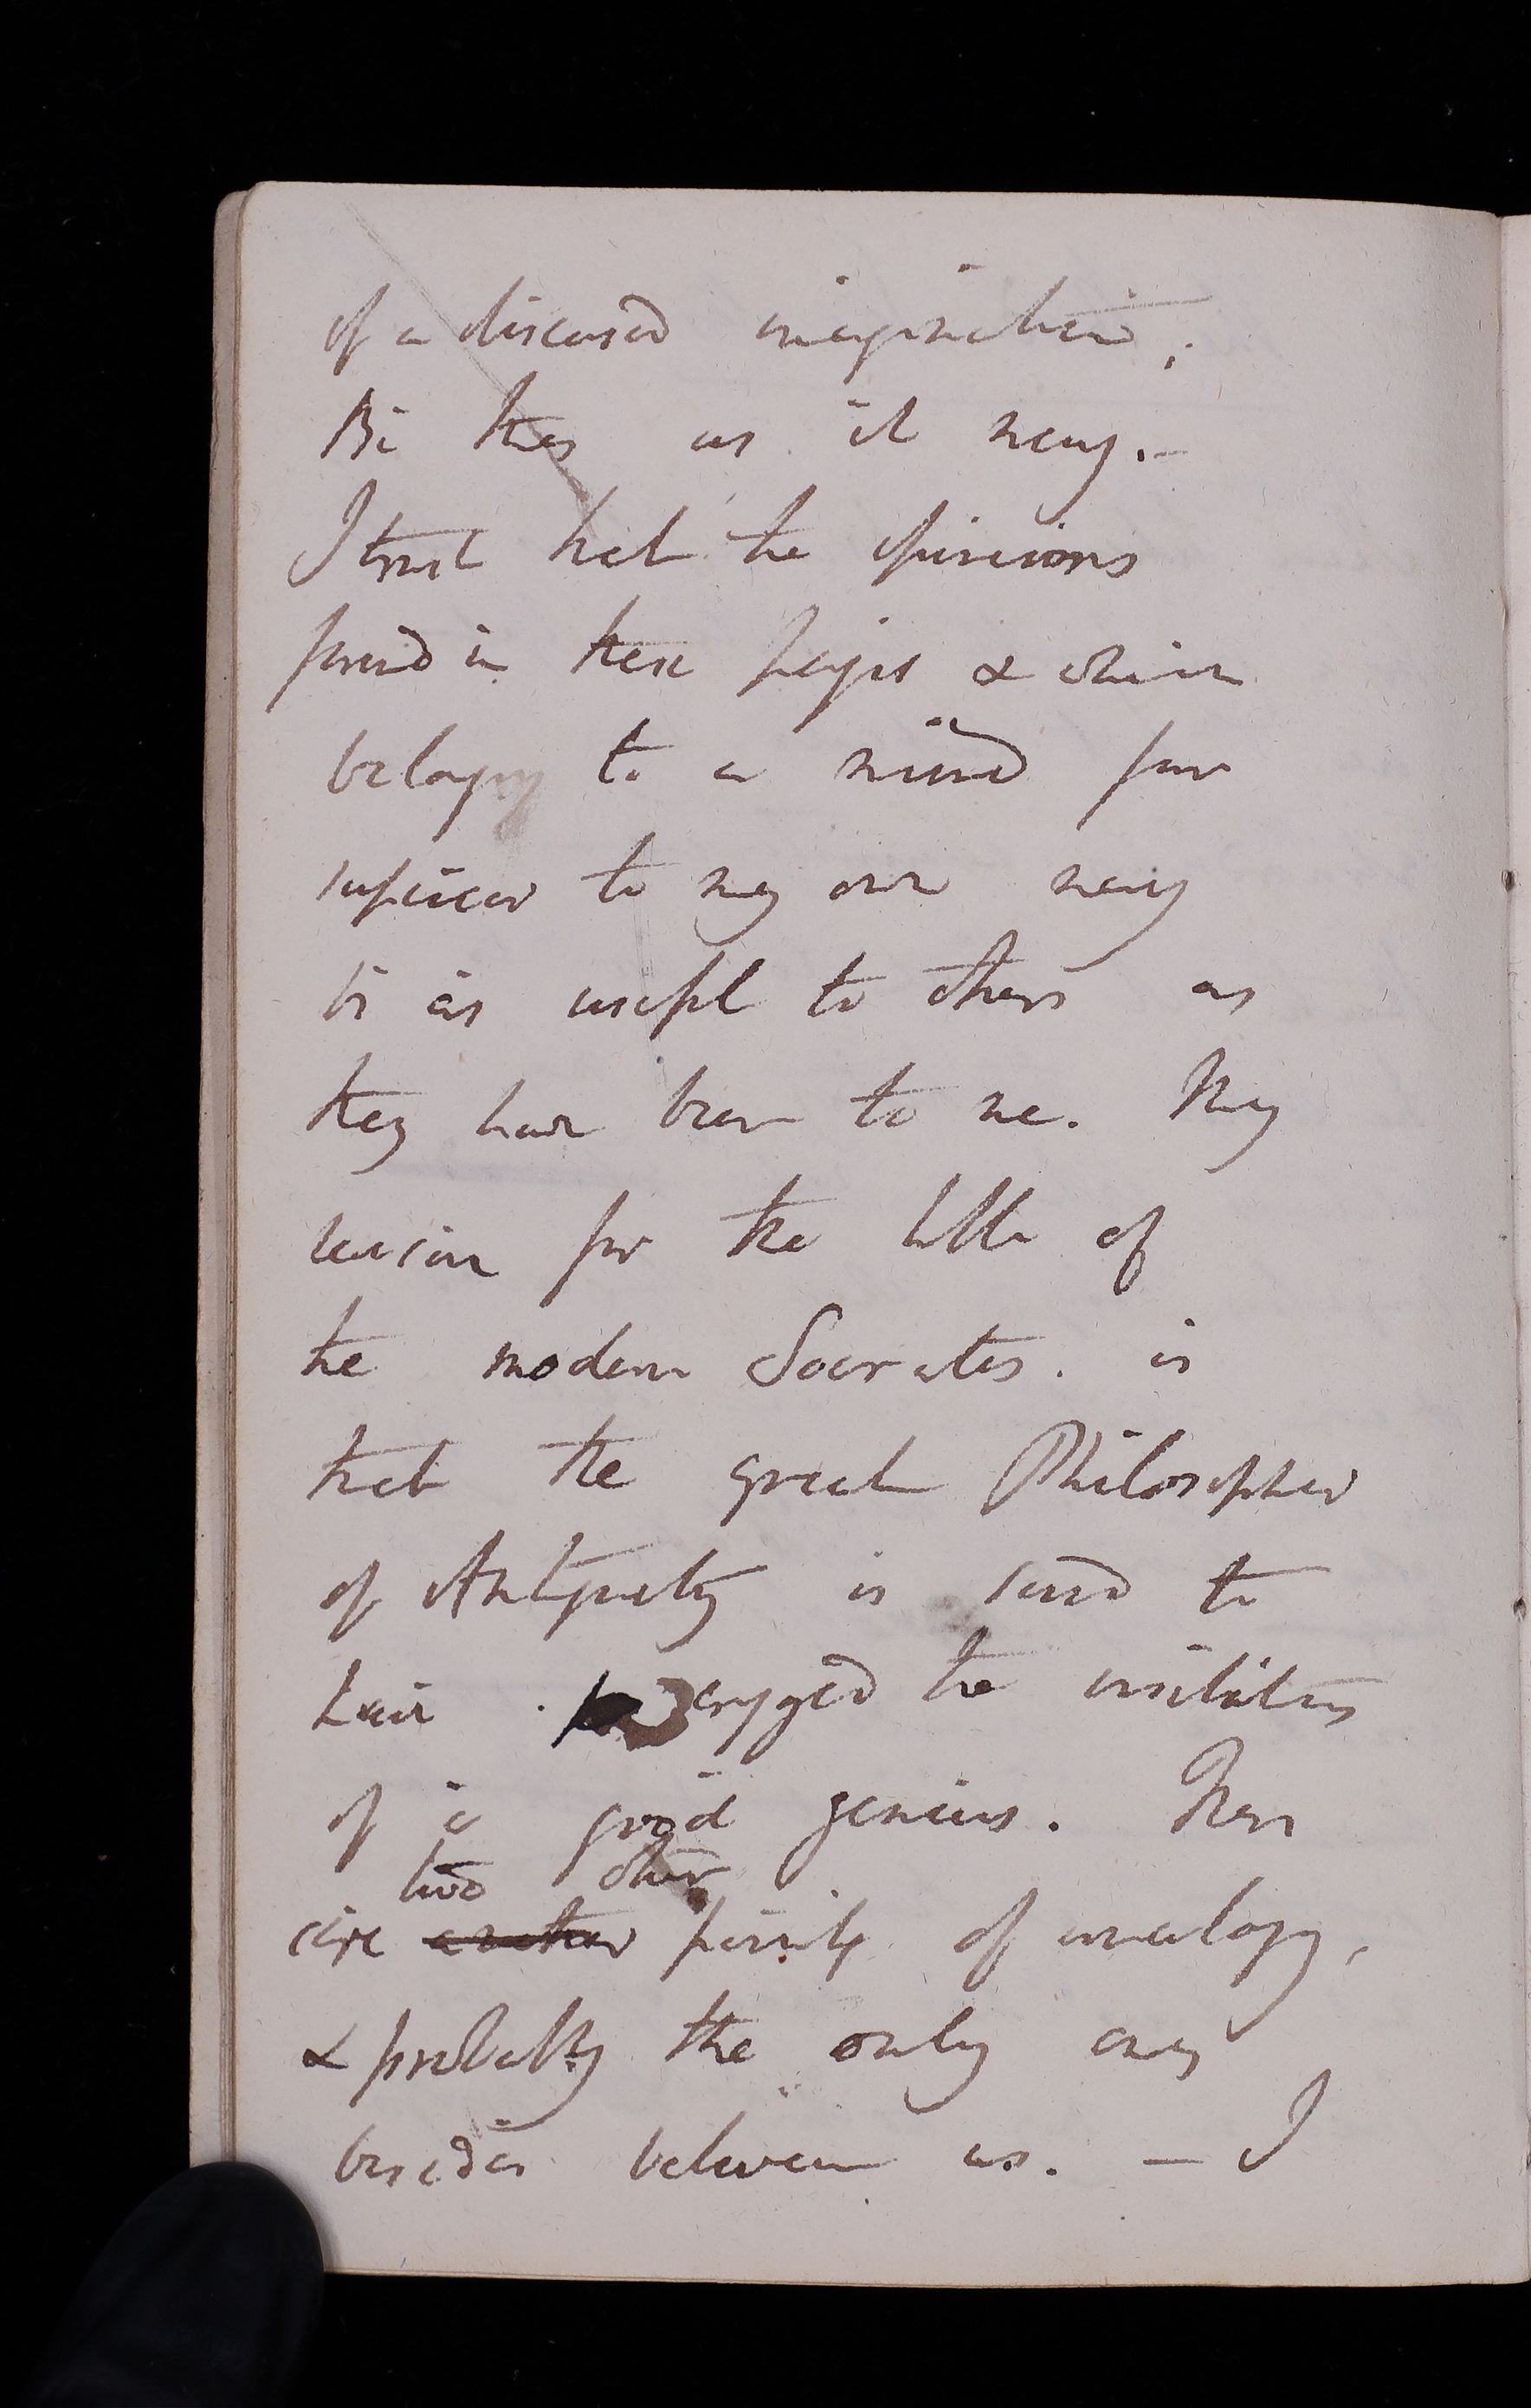 of a diseased imagination;
Be this as it may.-
I trust that the opinions
found in these pages & which
belong to a mind far
superior to my own may
be as useful to others as
they have been to me. My
reason for the title of
the modern Socrates. is
that the great Philosopher
of Antiquity is said to
have enjoyed the visitations
of a good genius. There
two other
are another points of analogy,
& probably the only ones
besides between us. — I